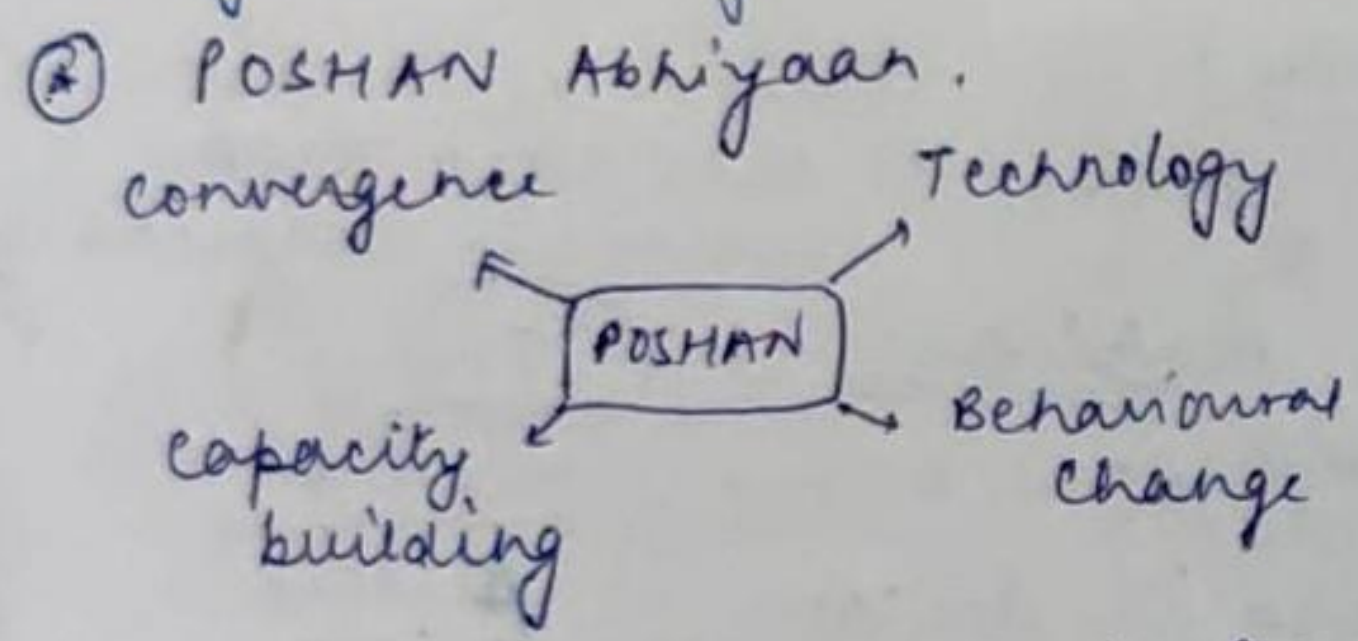 POSHAN Abhiyaan.
Convergence
Technology
POSHAN
Capacity
building
Behavioural
Change